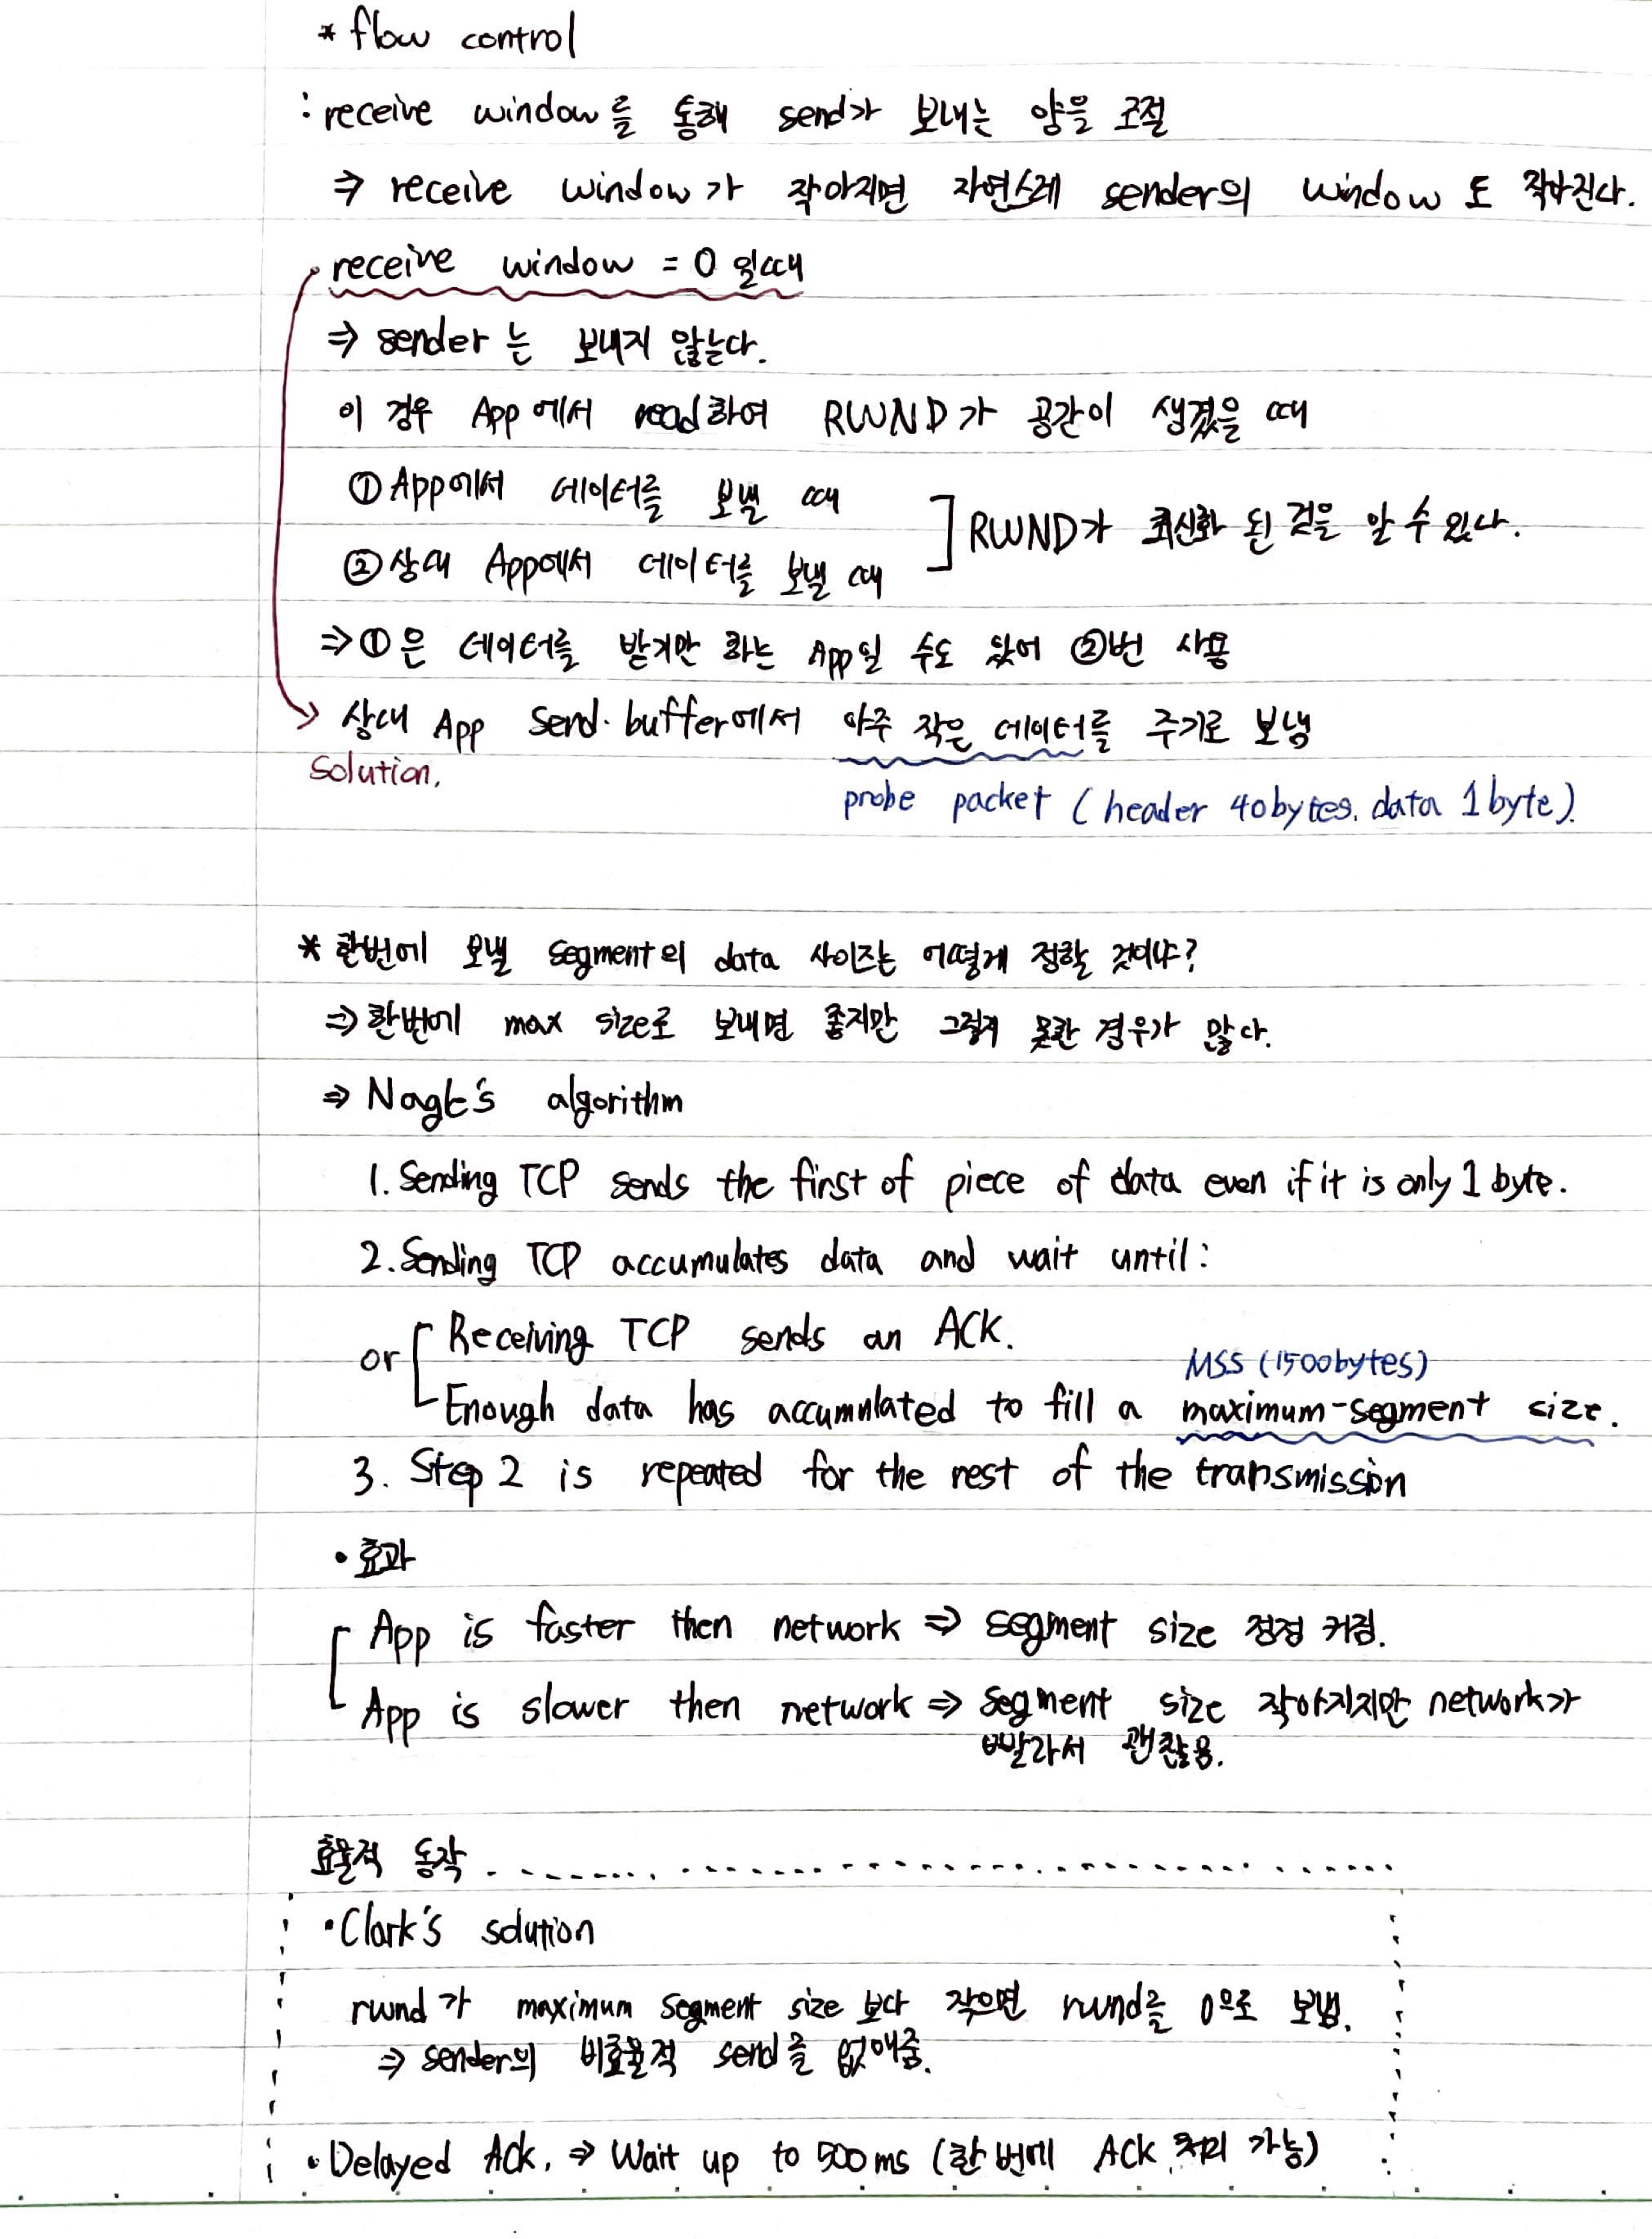 * flow control
: receive window를 통해 send가 보내는 양을 조절
⇒ receive window가 작아지면 자연스레 sender의 window도 작아진다.
• receive window = 0 일때
⇒ sender는 보내지 않는다.
이 경우 App에서 read하여 RWND가 공간이 생겼을 때
① App에서 데이터를 보낼 때
② 상대 App에서 데이터를 보낼 때
] RWND가 최신화 된 것을 알 수 있다.
⇒ ①은 데이터를 받기만 하는 App일 수도 있어 ②번 사용
→ 상대 App send.buffer에서 아주 작은 데이터를 주기로 보냄
Solution.
probe packet (header 40bytes. data 1byte).
* 한번에 보낼 segment의 data 사이즈는 어떻게 정할 것이냐?
⇒ 한번에 max size로 보내면 좋지만 그렇게 못한 경우가 많다.
⇒ Nagle's algorithm
1. Sending TCP sends the first of piece of data even if it is only 1 byte.
2. Sending TCP accumulates data and wait until :
or [ Receiving TCP sends an ACK.
MSS (1500bytes)
Enough data has accumulated to fill a maximum-segment size.
3. Step 2 is repeated for the rest of the transmission
• 효과
App is faster then network ⇒ segment size 점점 커짐.
App is slower then network ⇒ segment size 작아지지만 network가
빨라서 괜찮음.
효율적 동작
• Clark's solution
rwnd가 maximum segment size 보다 작으면 rwnd를 0으로 보냄.
⇒ sender의 비효율적 send를 없애줌.
• Delayed Ack. ⇒ Wait up to 500ms (한 번에 ACK 처리 가능)